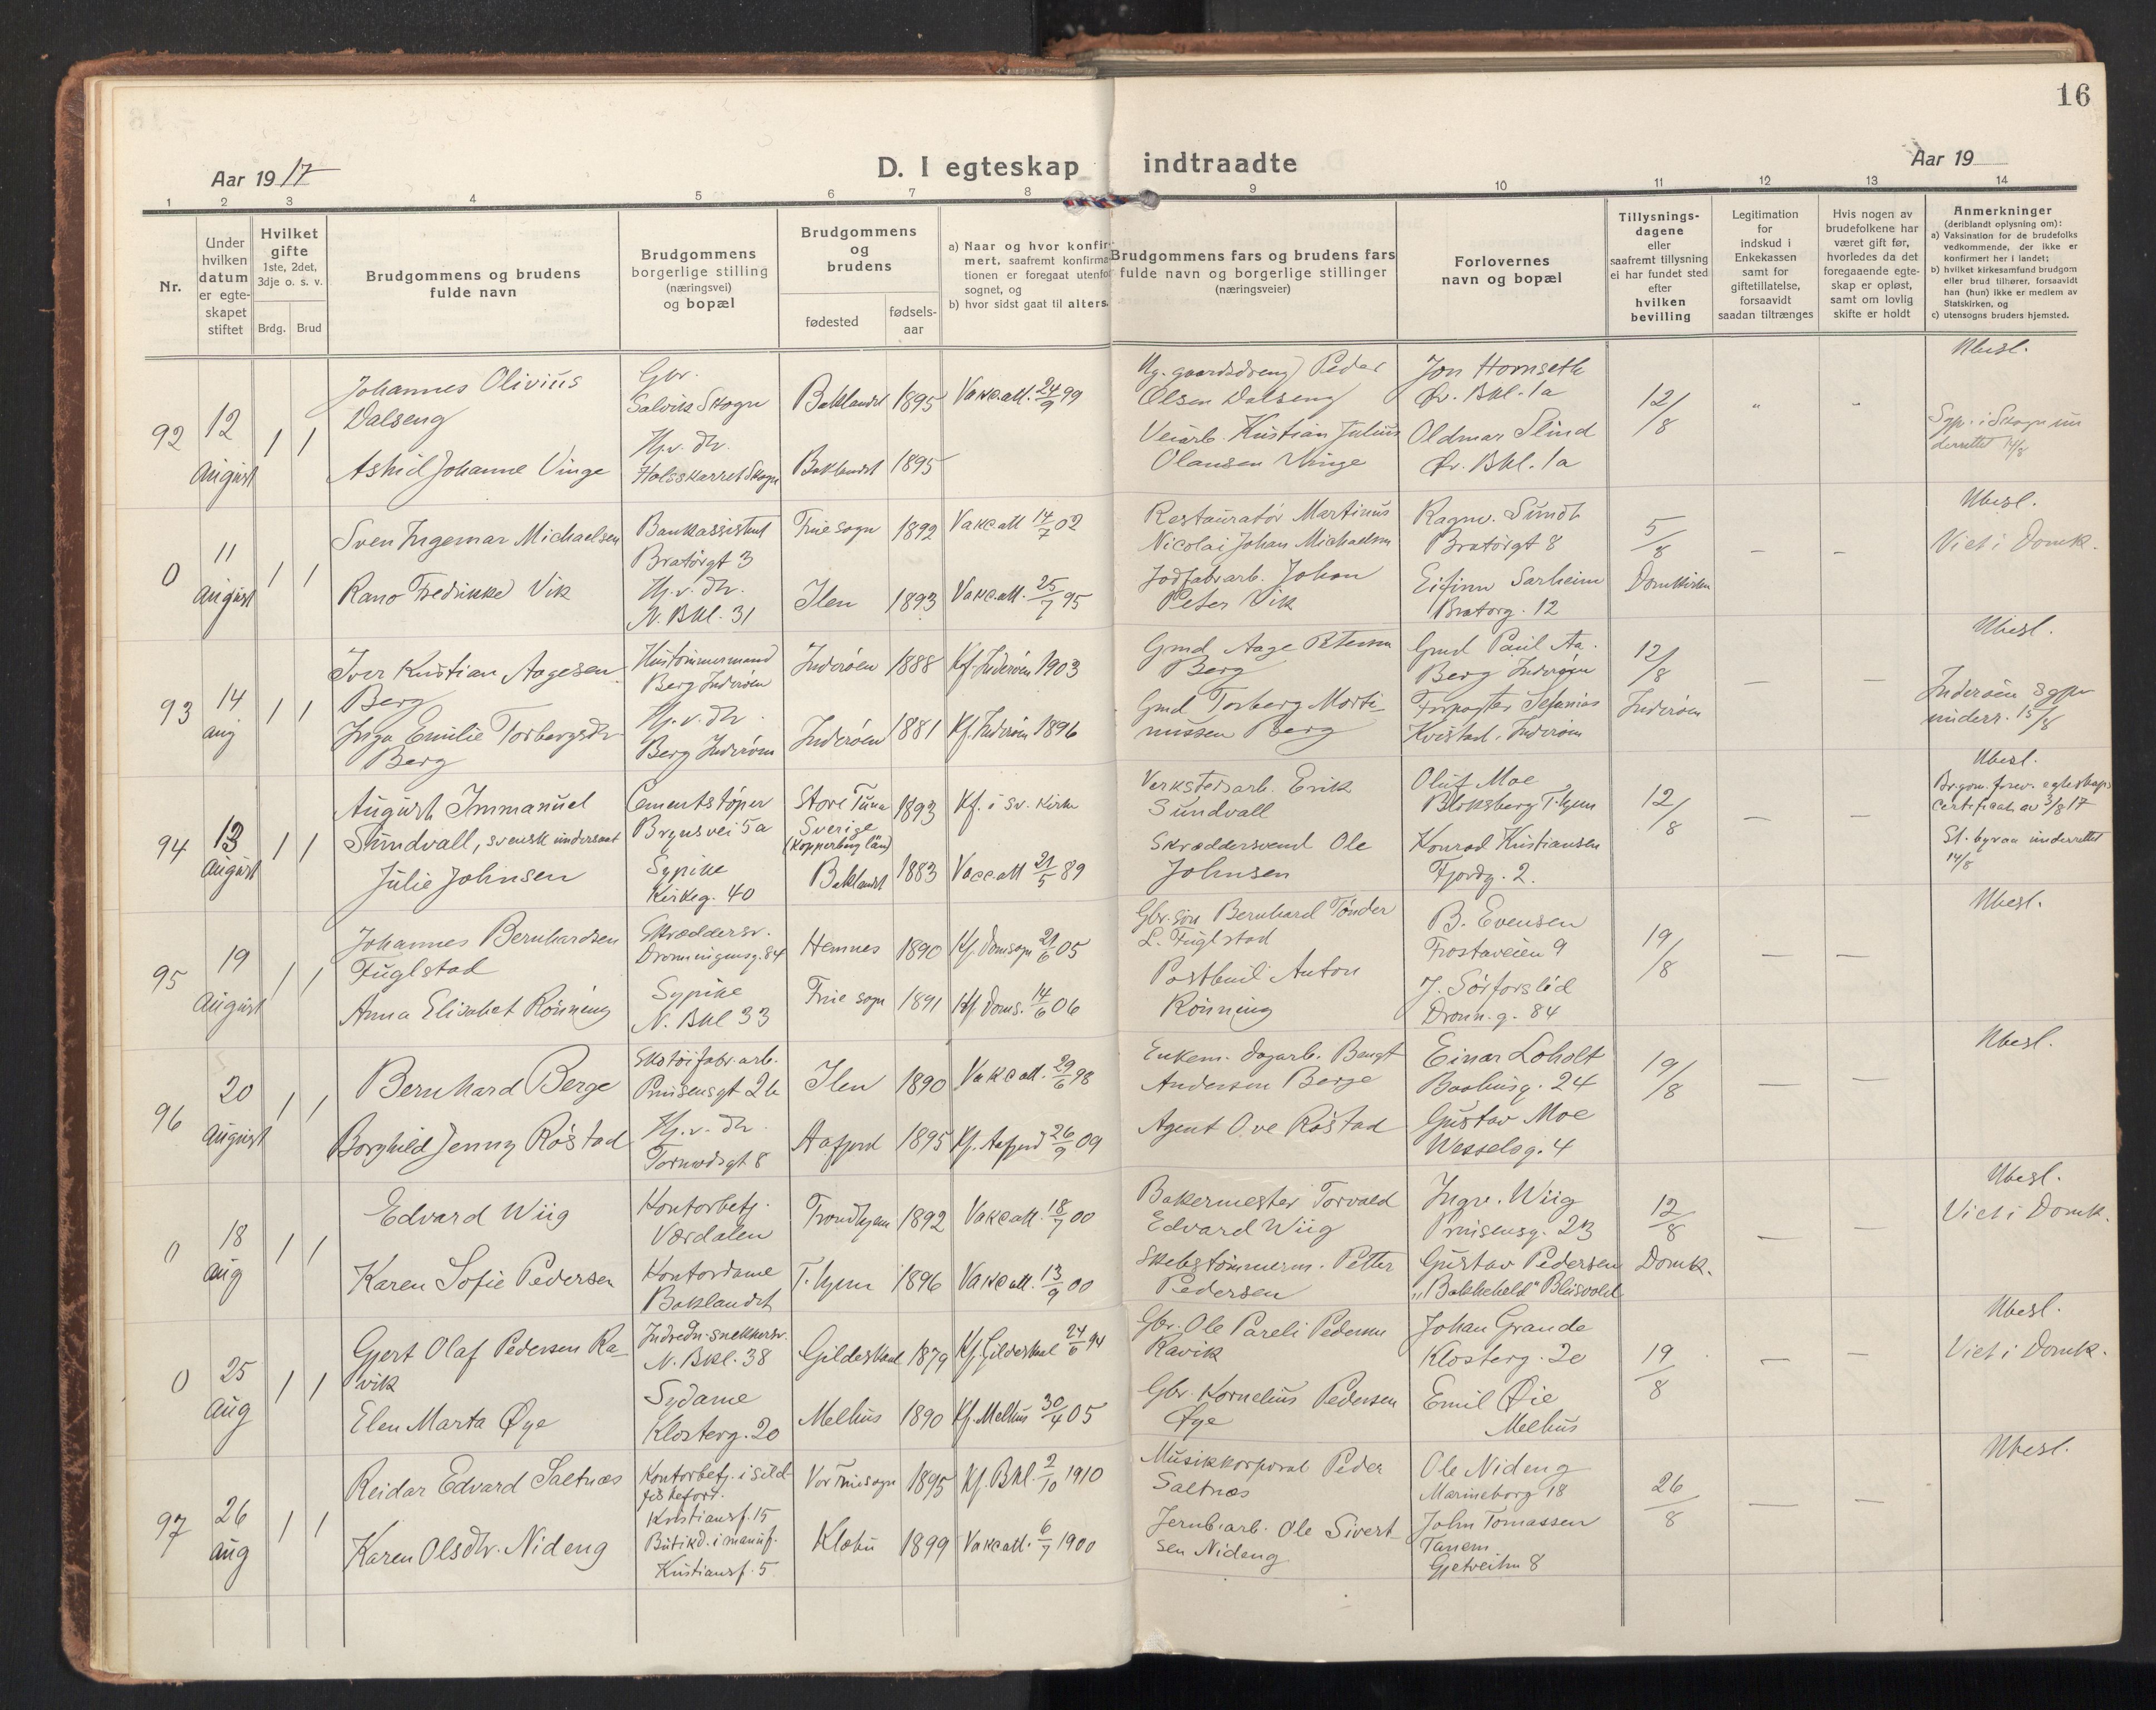 16
Aar 1917
D. I egteskap indtraadte
Aar 19
1 2 3 4 5 6 7 8 9 10 11 12 13 14
Nr.
Under hvilken datum er egteskapet stiftet
Hvilket gifte
1ste, 2det, 3dje o. s. v.
Brdg. Brud
Brudgommens og brudens fulde navn
Brudgommens borgerlige stilling (næringsvei) og bopæl
Brudgommens og brudens
fødested
fødselsaar
a) Naar og hvor konfirmert, saafremt konfirmationen er foregaat utenfor sognet, og
b) hvor sidst gaat til alters.
Brudgommens fars og brudens fars fulde navn og borgerlige stillinger (næringsveier)
Forlovernes navn og bopæl
Tillysningsdagene eller saafremt tillysning ei har fundet sted efter hvilken bevilling
Legitimation for indskud i Enkekassen samt for giftetillatelse, forsaavidt saadan tiltrænges
Hvis nogen av brudefolkene har været gift før, hvorledes da det foregaaende egteskap er opløst, samt om lovlig skifte er holdt
Anmerkninger
(deriblandt oplysning om):
a) Vaksination for de brudefolks vedkommende, der ikke er konfirmert her i landet;
b) hvilket kirkesamfund brudgom eller brud tilhører, forsaavidt han (hun) ikke er medlem av Statskirken, og
c) utensogns bruders hjemsted.
92
12 August
1 1
Johannes Olivius
Dalseng
Gbr.
Salvik Skogn
Baklandet 1895
Vakc.att. 24/9 99
gaardsdreng) Peder
Olsen Dalseng
Jon Hornseth
Ø. Bkl. 1a
12/8
Ubesl.
Astrid Johanne Vinge
Hj.v. dtr.
Holsskarret Skogn
Baklandet 1895
Veiarb. Kristian Julius
Olausen Vinge
Oldmar Slind
Øv. Bkl. 1a
0
11 August
1 1
Sven Ingemar Michaelsen
Bankassistent
Bratørgt 3
Frue sogn 1892
Vakc att 14/7 02
Restauratør Martinus
Nicolai Johan Michaelsen
Ragnv. Sundt
Bratørgt 8
5/8
Domkirken
Ubesl.
Viet i Domk.
Fredrikke Vik
Hj.v. dtr.
N. Bkl. 31
Ilen 1893
Vakc.att. 25/7 95
Jodfabr.arb. Johan
Peter Vik
Sarheim
Bratørg. 12
93
14 aug
1 1
Iver Kristian Aagesen
Berg
Hustømmermand
Berg Inderøen
Inderøen 1888
Kf. Inderøen 1903
Gmd Aage Petersen
Berg
Gmd Paul Aa.
Berg Inderøen
12/8
Inderøen
Ubesl.
Inderøen sgpr
underr. 15/8
Inga Emilie Torbergsdtr
Berg
Hj.v. dtr.
Berg Inderøen
Inderøen 1881
Kf. Inderøen 1896
Gmd Torberg Marti-
nussen Berg
Forpagter
Kvistad, Inderøen
94
13 August
1 1
August Immanuel
Sundvall, svensk undersaat
Cementstøper
Brynsvei 5a
Store Tuna
Sverige
(Kopperberg län)
1893
Kf. i sv. kirke
Verkstedsarb. Erik
Sundvall
Oluf Moe
Bloksberg T.hjem
12/8
Ubesl.
Brgom. forev. egteskaps
certificat av 3/8 17
St. byraa underrettet
14/8
Julie Johnsen
Sypike
Kirkeg. 40
Baklandet 1883
Vacc att 21/5 89
Skræddersvend Ole
Johnsen
Konrad Kristiansen
Fjordg. 2.
95
19 August
1 1
Johannes Bernhardsen
Fuglstad
Skræddersv.
Dronningensg. 84
Hemnes 1890
Kf. Domsogn 21/6 05
Gbr.søn Bernhard Tønder
L. Fuglstad
B. Evensen
Frostaveien 9
19/8
Ubesl.
Anna Elisabet Rønning
Sypike
N. Bkl 33
Frue sogn 1891
Kf Doms. 14/6 06
Postbud Anton
Rønning
J. Sørforslød
Dronn.g. 84
96
20 August
1 1
Bernhard Berge
Skotøifabr.arb.
Prinsensgt 2b
Ilen 1890
Vakc att. 29/6 98
Enkem. dagarb. Bengt
Andersen Berge
Einar Loholt
Baahusg. 24
19/8
Ubesl.
Borghild Jenny Røstad
Hj.v. dtr.
Tornwdsgt 8
Aafjord 1895
Kf. Aafjord 26/9 09
Agent Ove Røstad
Gustav Moe
Wesselsg. 4
0
18 aug
1 1
Edvard Wiig
Kontorbetj.
Værdalen
Trondhjem 1892
Vakc att. 18/7 00
Bakermester Torvald
Edvard Wiig
Ingv. Wiig
Prinsensg. 23
12/8
Domk.
Ubesl.
Viet i Domk.
Karen Sofie Pedersen
Kontordame
Baklandet
T.hjem 1896
Vakc att. 13/9 00
Skibstømmerm. Petter
Pedersen
Gustav Pedersen
"Bakkeheld" Blusvold
0
25 Aug
1 1
Gjert Olaf Pedersen Ra-
vik
Indredn.snekkersv.
N. Bkl. 38
Gildeskaal 1879
Kf. Gildeskaal 24/6 94
Gbr. Ole Pareli Pedersen
Ravik
Johan Grande
Klosterg. 20
19/8
Ubesl.
Viet i Domk.
Elen Marta Øye
Sydame
Klosterg. 20
Melhus 1890
Kf. Melhus 30/4 05
Gbr. Kornelius Pedersen
Øye
Emil Øie
Melhus
97
26 aug
1 1
Reidar Edvard Saltnæs
Kontorbetj. i sild-
fiskeforr.
Kristiansf. 15
Vor Fruesogn 1895
Kf. Bkl. 2/10 1910
Musikkorporal Peder
Saltnæs
Ole Nideng
Marineborg 18
26/8
Ubesl.
Karen Olsdtr. Nideng
Butikd. i manuf.
Kristiansf. 5
Klæbu 1899
Vakc att. 6/7 1900
Jernb.arb. Ole Sivert-
sen Nideng
John Tomassen
Tanem
Gjetveitn 8